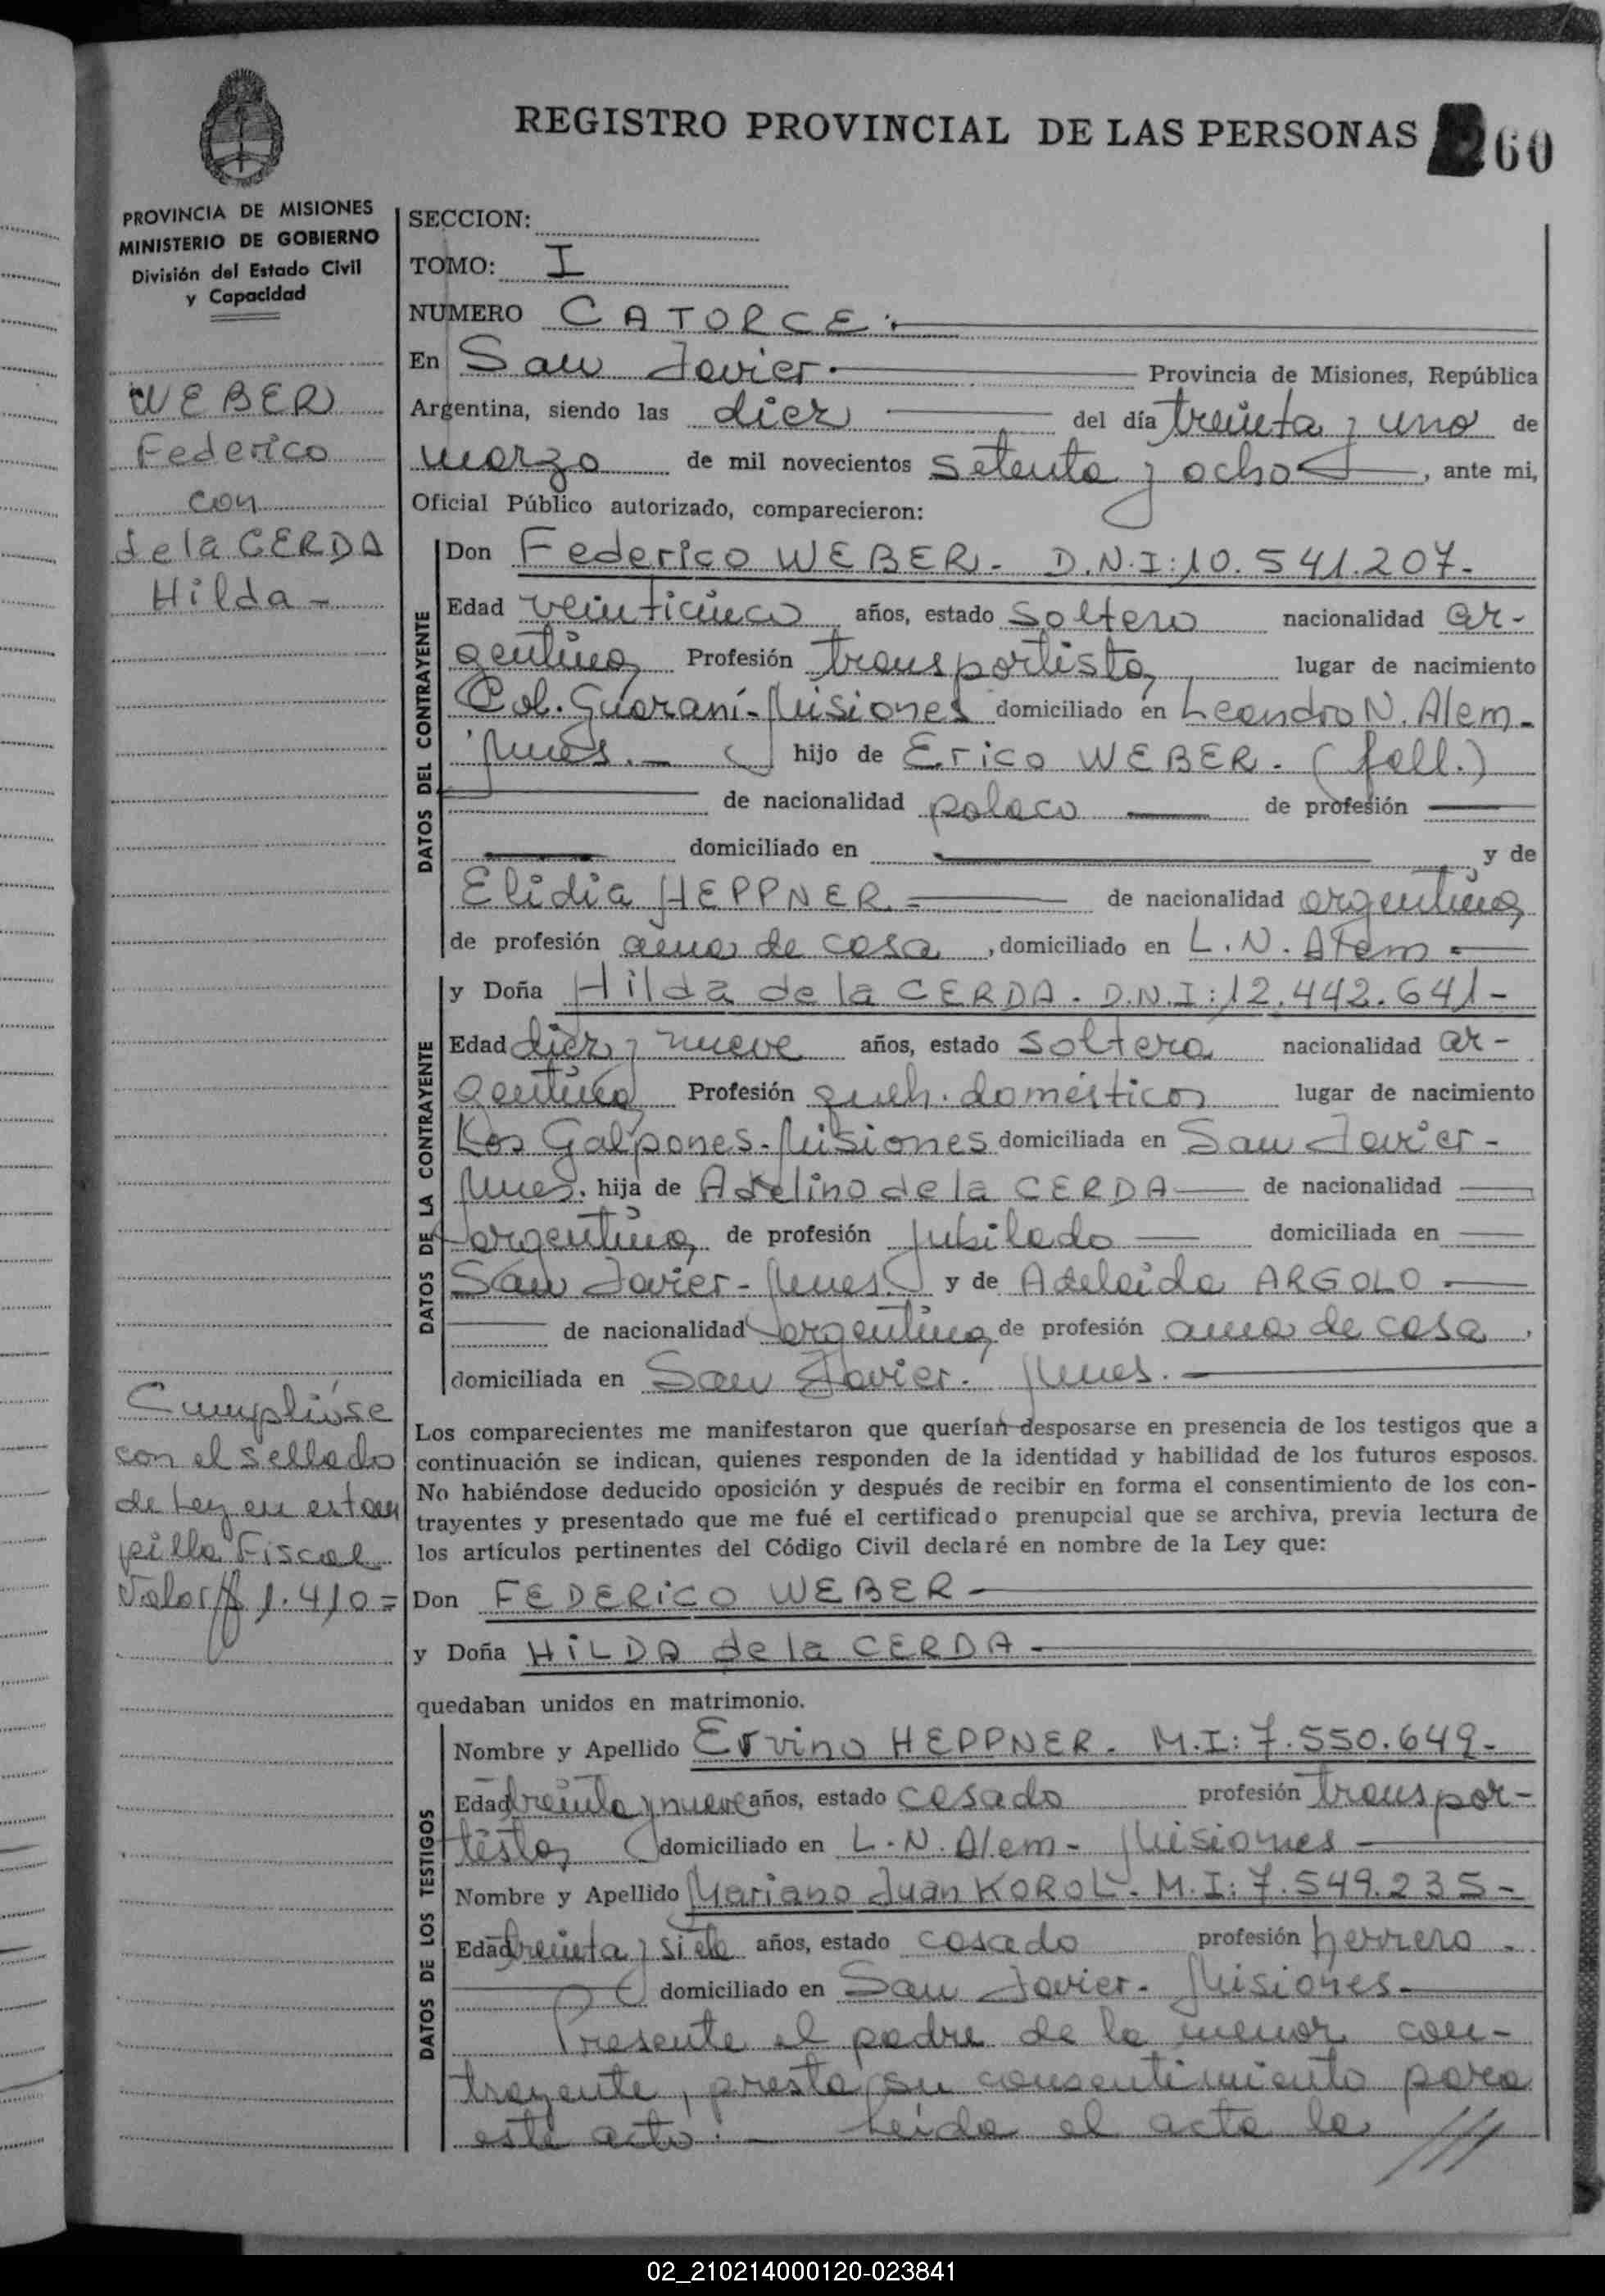 REGISTRO PROVINCIAL DE LAS PERSONAS 260
PROVINCIA DE MISIONES
MINISTERIO DE GOBIERNO
División del Estado Civil
y Capacidad
WEBER
Federico
con
de la CERDA
Hilda -
Cumplióse
con el sellado
de Ley en estam
pilla Fiscal
Valor $ 1.410=
SECCION:
TOMO: I
NUMERO CATORCE.
En San Javier. Provincia de Misiones, República
Argentina, siendo las diez del día treinta y uno de
marzo de mil novecientos setenta y ocho, ante mi,
Oficial Público autorizado, comparecieron:
DATOS DEL CONTRAYENTE
Don Federico WEBER. D.N.I: 10.541.207.
Edad veinticinco años, estado soltero nacionalidad ar-
gentina Profesión transportista lugar de nacimiento
Col. Guaraní-Misiones domiciliado en Leandro N. Alem-
Mnes.- hijo de Erico WEBER. (fall.)
de nacionalidad polaco de profesión
domiciliado en y de
Elidia HEPPNER. de nacionalidad argentina
de profesión ama de casa, domiciliado en L. N. Alem -
DATOS DE LA CONTRAYENTE
y Doña Hilda de la CERDA. D.N.I: 12.442.641-
Edad diez y nueve años, estado soltera nacionalidad ar-
gentina Profesión queh. domésticos lugar de nacimiento
Los Galpones-Misiones domiciliada en San Javier-
Mnes. hija de Adelino de la CERDA de nacionalidad
argentina de profesión jubilado domiciliada en
San Javier-Mnes. y de Adelaida ARGOLO
de nacionalidad argentina de profesión ama de casa,
domiciliada en San Javier. Mnes.
Los comparecientes me manifestaron que querían desposarse en presencia de los testigos que a
continuación se indican, quienes responden de la identidad y habilidad de los futuros esposos.
No habiéndose deducido oposición y después de recibir en forma el consentimiento de los con-
trayentes y presentado que me fué el certificado prenupcial que se archiva, previa lectura de
los artículos pertinentes del Código Civil declaré en nombre de la Ley que:
Don FEDERICO WEBER
y Doña HILDA de la CERDA
quedaban unidos en matrimonio.
DATOS DE LOS TESTIGOS
Nombre y Apellido Ervino HEPPNER. M.I: 7.550.649-
Edad treinta y nueve años, estado casado profesión transpor-
tista domiciliado en L. N. Alem- Misiones
Nombre y Apellido Mariano Juan KOROL. M.I: 7.549.235-
Edad treinta y siete años, estado casado profesión herrero.
domiciliado en San Javier. Misiones.
Presente el padre de la menor con-
trayente, presta su consentimiento para
este acto. - Leida el acta la ///
02_210214000120-023841